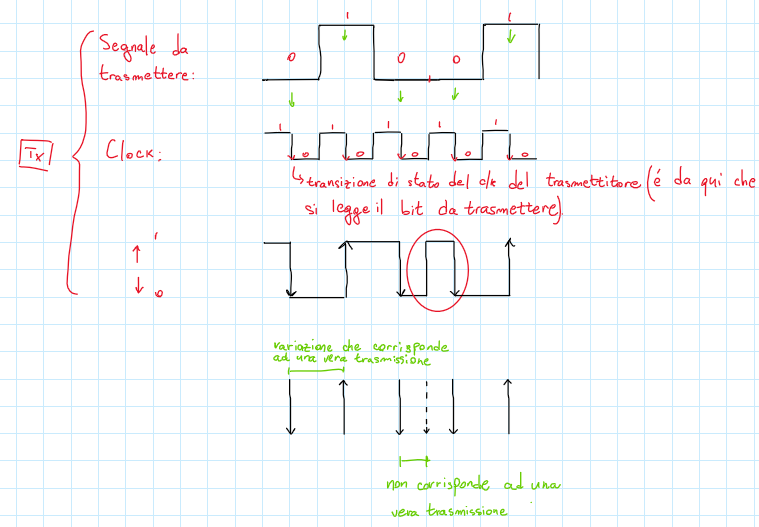 Segnale da
trasmettere:
0 1 0 0 1
Tx
Clock:
1 0 1 0 1 0 1 0 1 0
transizione di stato del clk del trasmettitore (é da qui che
si legge il bit da trasmettere)
1
0
variazione che corrisponde
ad una vera trasmissione
non corrisponde ad una
vera trasmissione